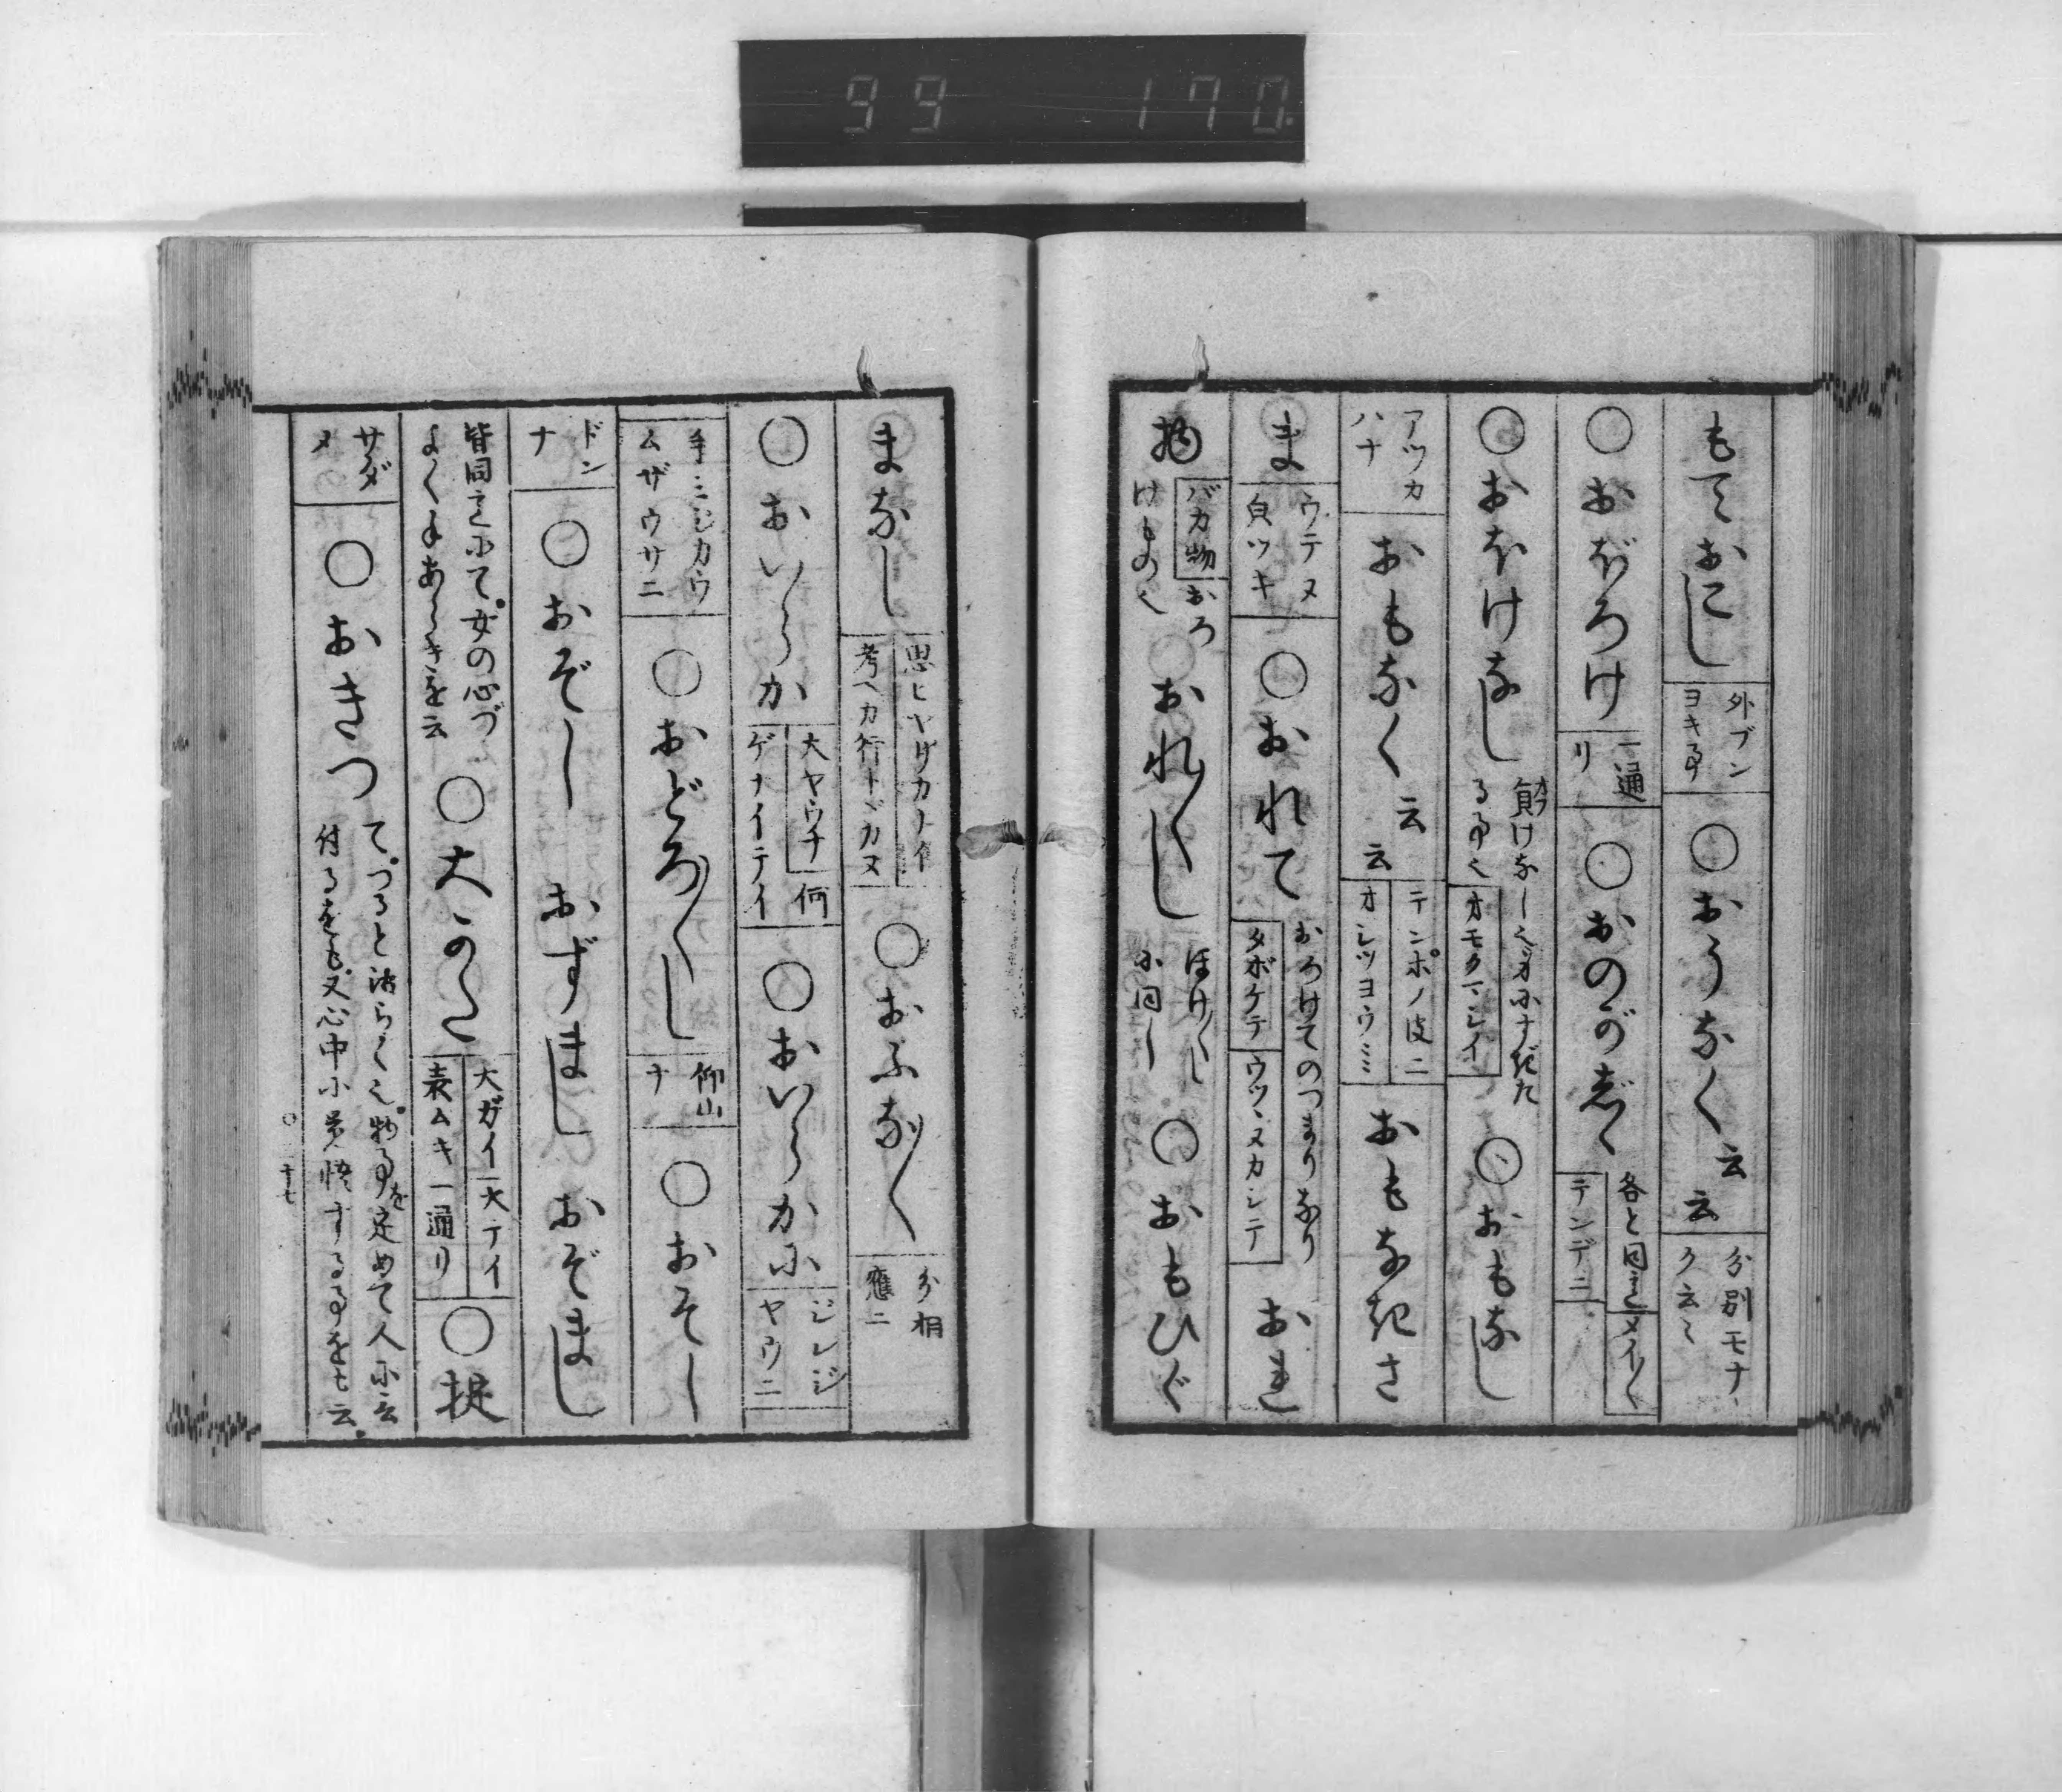 99 170
もておこし 外ブンヨキ事 ○おうなく云云 分別モナク云々
○おぼろけ 一通リ ○おのがじゝ 各と同し メイ〱 テンデニ
○おほけなし 負けなし る事也 オモクマシイ ○おもなし
アツカハナ おもなく云云 テンポノ皮ニ オシツヨウミミ おもなさ
ま ウテヌ 㒵ツキ ○おれて おろけてのつまりなり タボケテ ウツヽヌカシテ おれ
物 バカ物 おろけもの也 おれ〱し ほけ〱し に同し ○おもひぐ
まなし 思ヒヤリカナイ 考ヘカ行トドカヌ ○おふな〱 分相應ニ
○おいらか 大ヤウナ 何ゲナイテイ ○おいらかに ジレジヤウニ
手ミジカウ ムザウサニ ○おどろ〱し 仰山ナ ○おそし
ドンナ ○おぞし おずまし おぞまし
皆同しにて女の心づよく手あらきを云 ○大かた 大ガイ 大テイ 表ムキ一通リ ○掟
サダメ ○おきつ て、つると活らく也物事を定めて人に云付るをも又心中に覚悟する事をも云
○二十七